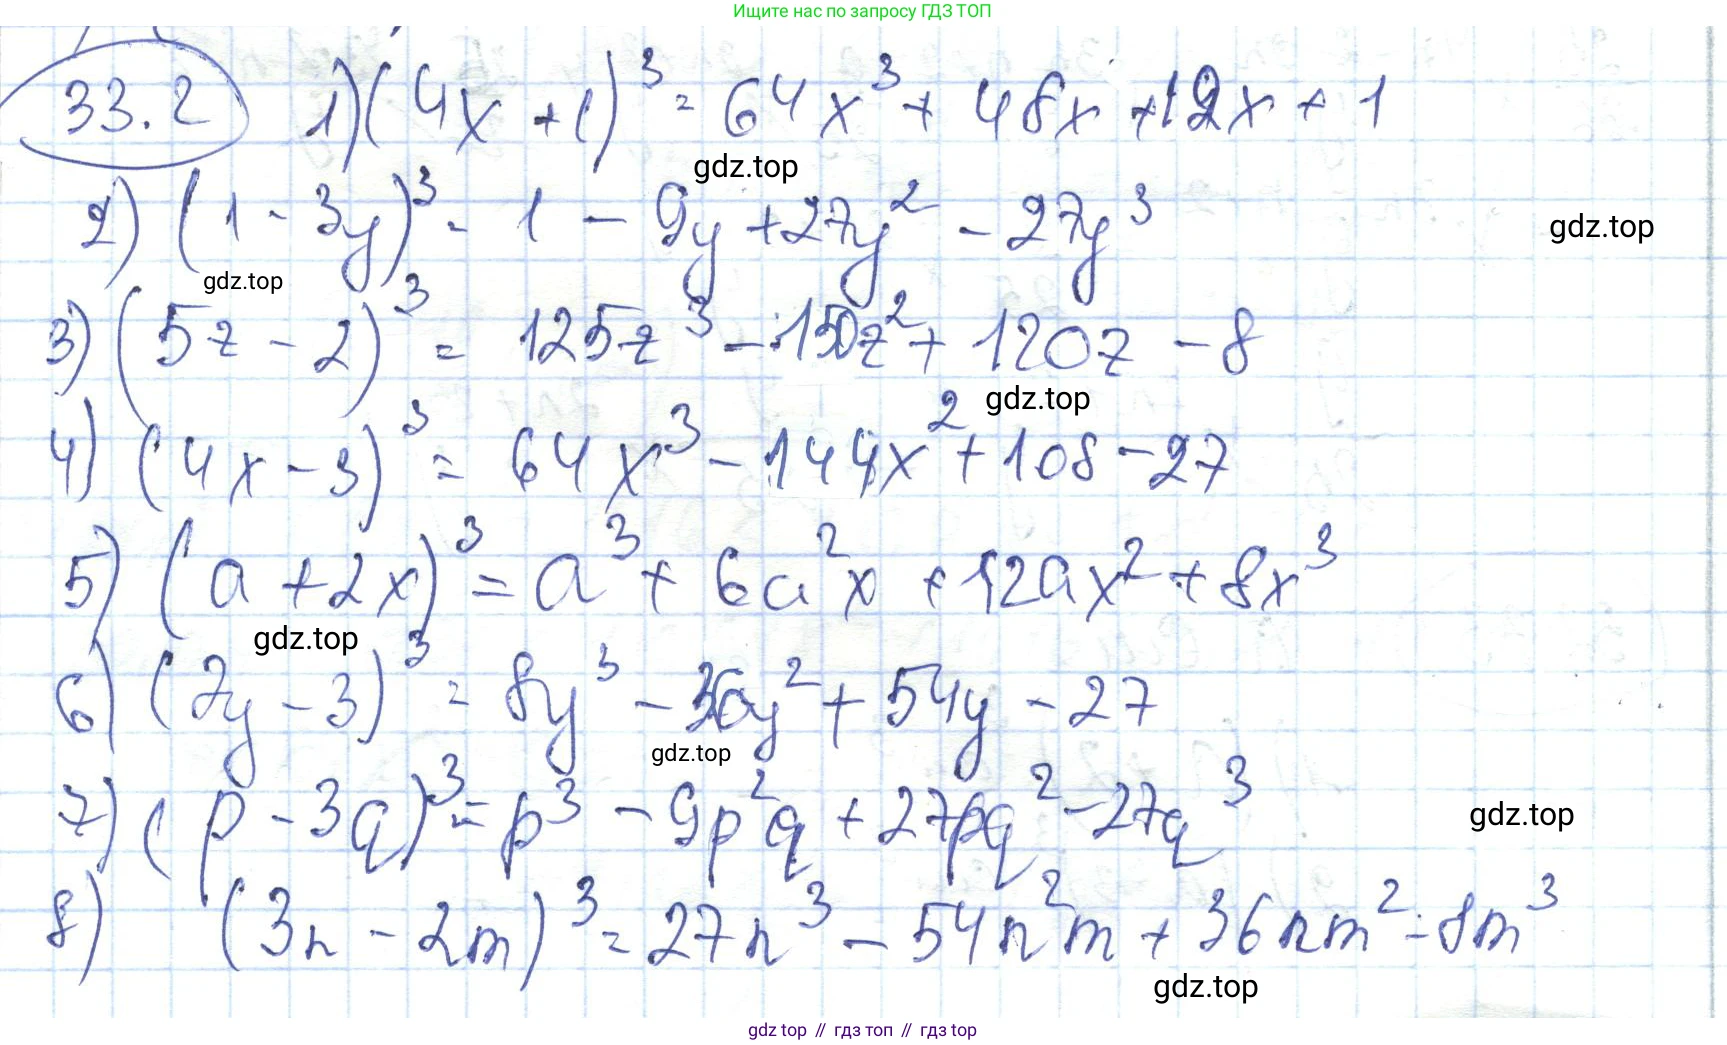 Ищите нас по запросу ГДЗ ТОП
33.2 1) (4x + 1)³ = 64x³ + 48x + 12x + 1
gdz.top
2) (1 - 3y)³ = 1 - 9y + 27y² - 27y³
gdz.top
gdz.top
3) (5z - 2)³ = 125z³ - 150z² + 120z - 8
gdz.top
4) (4x - 3)³ = 64x³ - 144x² + 108 - 27
5) (a + 2x)³ = a³ + 6a²x + 12ax² + 8x³
gdz.top
6) (2y - 3)³ = 8y³ - 36y² + 54y - 27
gdz.top
7) (p - 3q)³ = p³ - 9p²q + 27pq² - 27q³
gdz.top
8) (3n - 2m)³ = 27n³ - 54n²m + 36nm² - 8m³
gdz.top
gdz top // гдз топ // гдз top